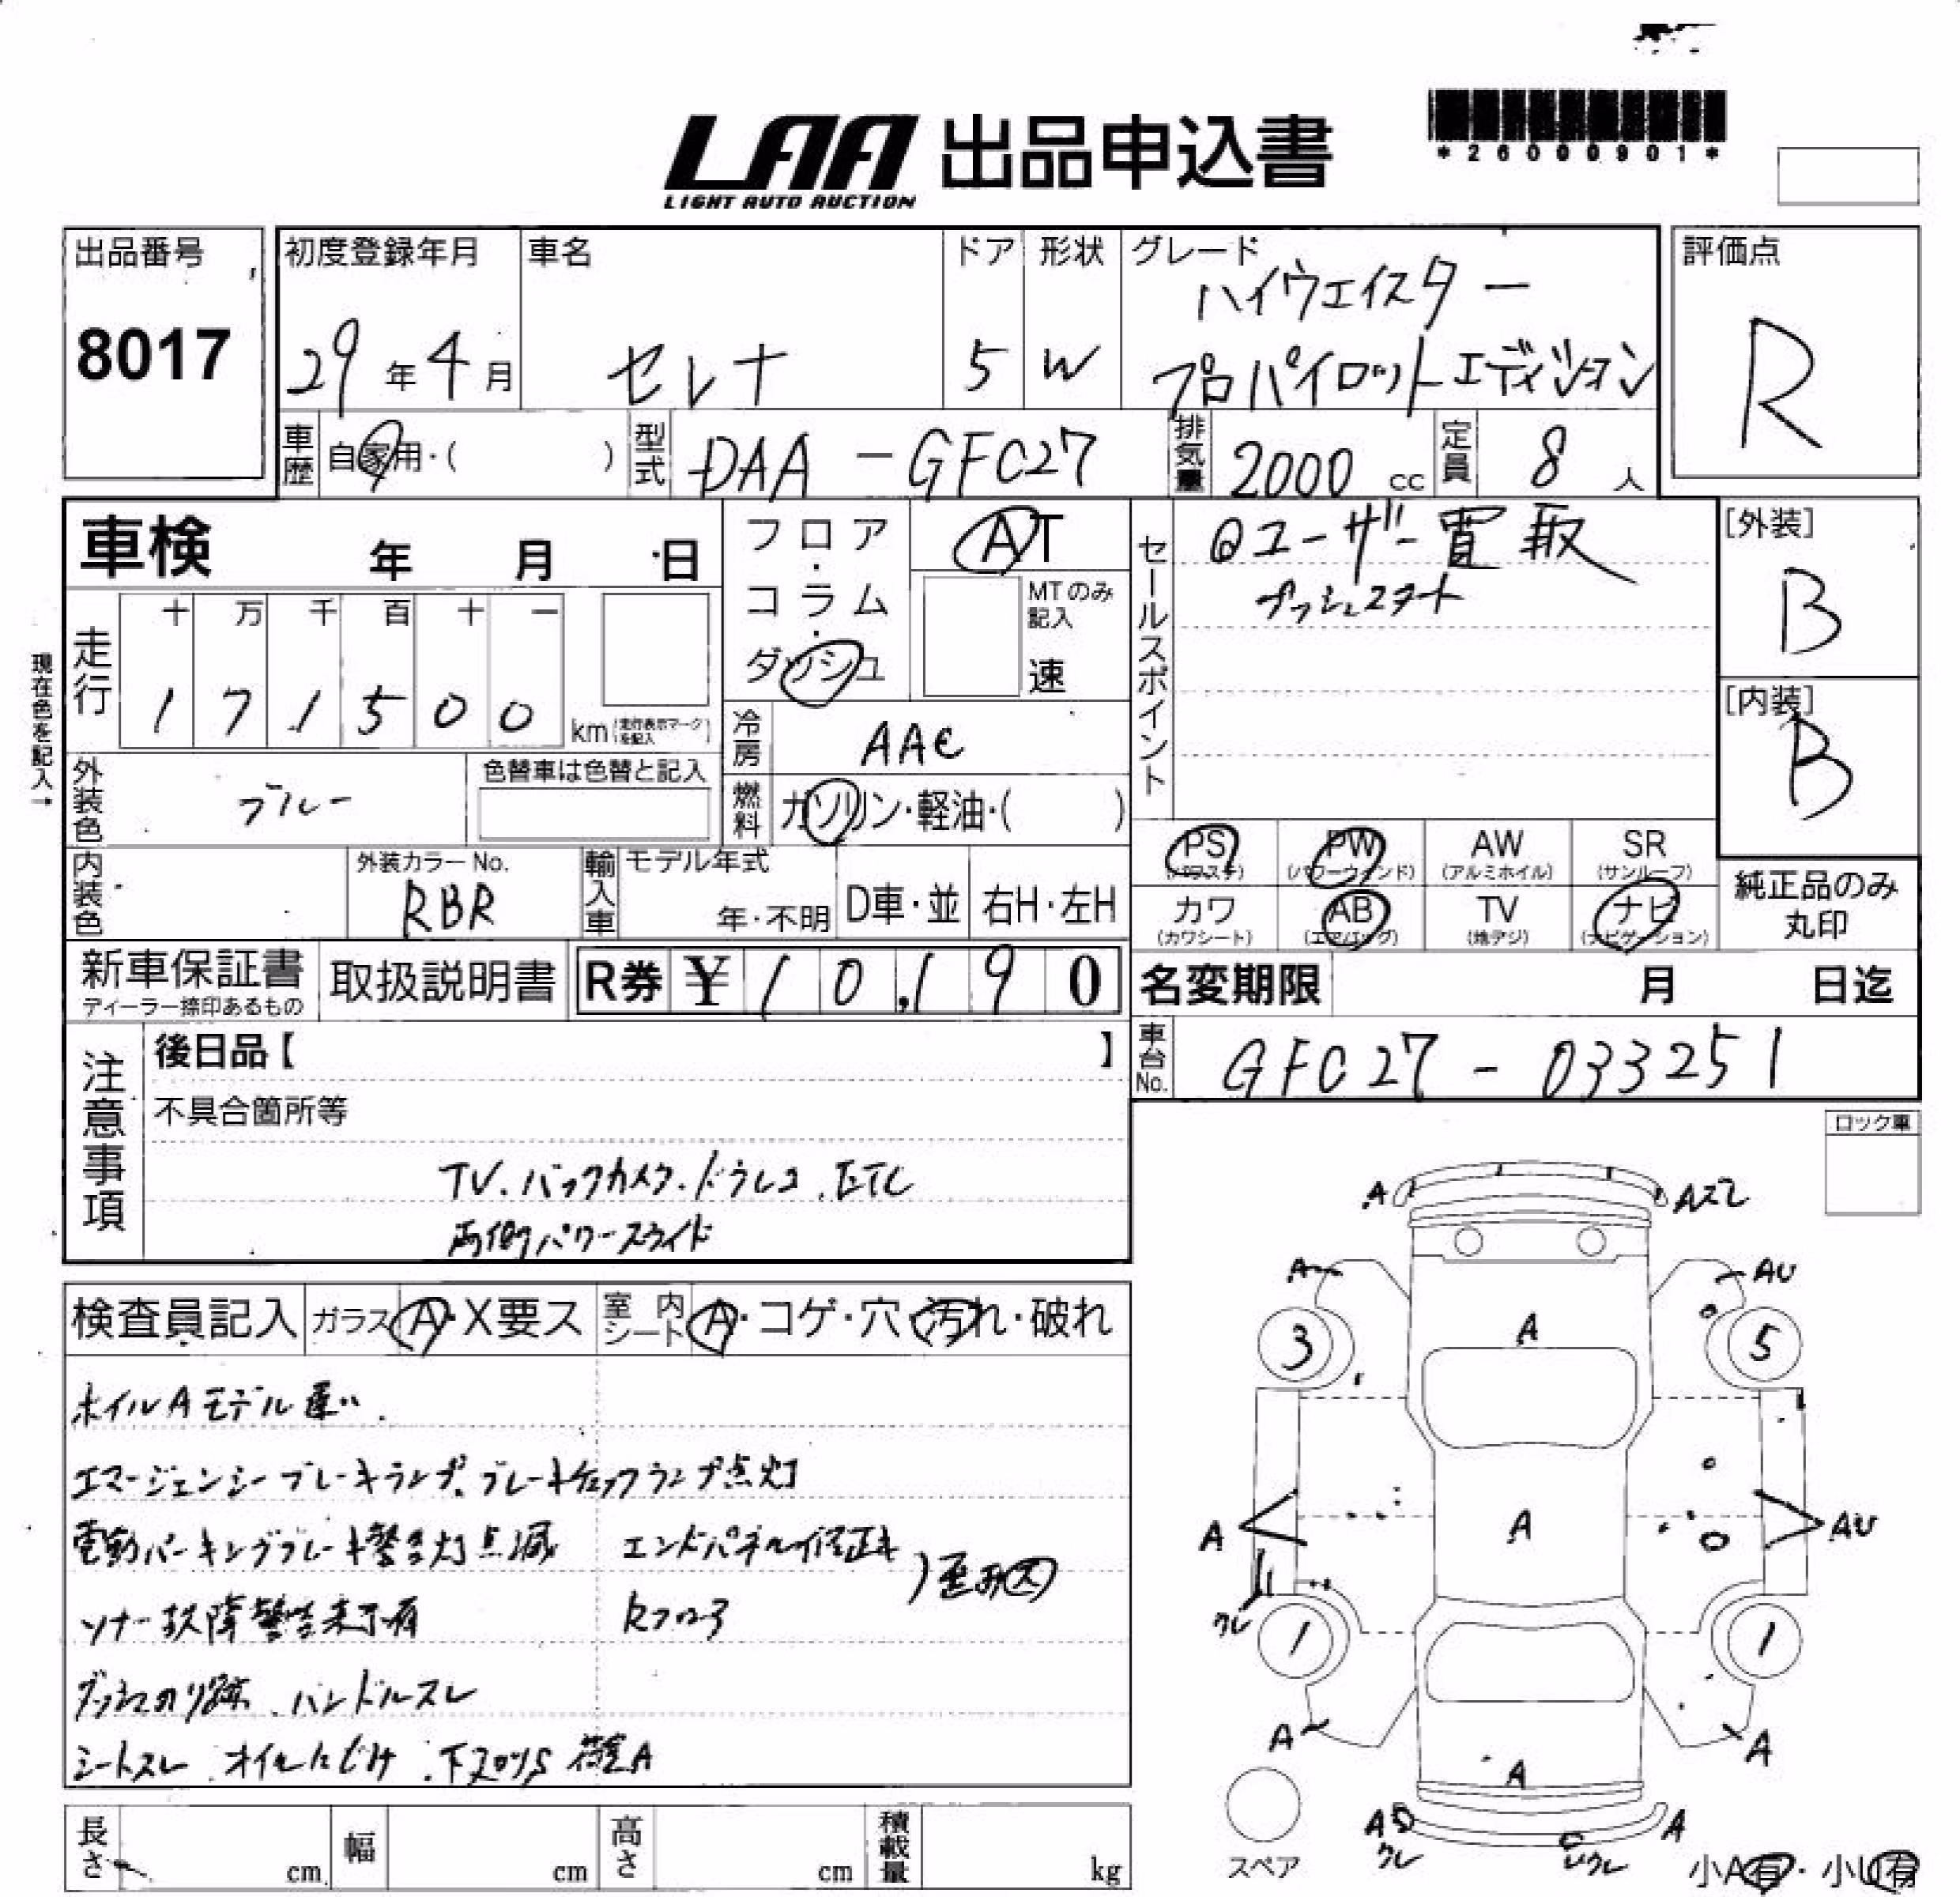 LAA 出品申込書
LIGHT AUTO AUCTION
*26000901*
出品番号
8017
初度登録年月
29年4月
車名
セレナ
ドア
5
形状
W
グレード
ハイウェイスター
プロパイロットエディション
評価点
R
車歴 自家用・( )
型式 DAA-GFC27
排気量 2000 cc
定員 8 人
車検 年 月 日
フロア・コラム・ダッシュ
AT
MTのみ記入
速
セールスポイント
@ユーザー買取
プッシュスタート
[外装]
B
[内装]
B
現在色を記入→
走行
十 万 千 百 十 一
1 7 1 5 0 0
km(走行表示マークを記入)
冷房 AAC
外装色 ブルー
色替車は色替と記入
燃料 ガソリン・軽油・( )
PS (パワステ)
PW (パワーウィンド)
AW (アルミホイル)
SR (サンルーフ)
カワ (カワシート)
AB (エアバッグ)
TV (地デジ)
ナビ (ナビゲーション)
純正品のみ丸印
内装色
外装カラーNo.
RBR
輸入車
モデル年式
年・不明
D車・並
右H・左H
新車保証書
ディーラー捺印あるもの
取扱説明書
R券 ¥10,190
名変期限 月 日迄
車台No. GFC27-033251
注意事項
後日品【 】
不具合箇所等
TV.バックカメラ.ドラレコ.ETC
両側パワースライド
ロック車
検査員記入
ガラス A・X要ス
室内シート A・コゲ・穴・汚れ・破れ
ホイルAモデル違い.
エマージェンシーブレーキランプ、ブレーキチェックランプ点灯
電動パーキングブレーキ警告灯点滅
エンドパネル修正キ
ソナー故障警告表示有
Rフロア
)歪み又
ダッシュのり跡.ハンドルスレ
シートスレ.オイルにじみ.下スリキズ 荷室A
長さ cm
幅 cm
高さ cm
積載量 kg
A
Aズレ
A
AU
3
A
5
A
A
AU
ワレ
1
1
A
A
A
スペア
A
ワレ
A
ワレ
小A有・小U有